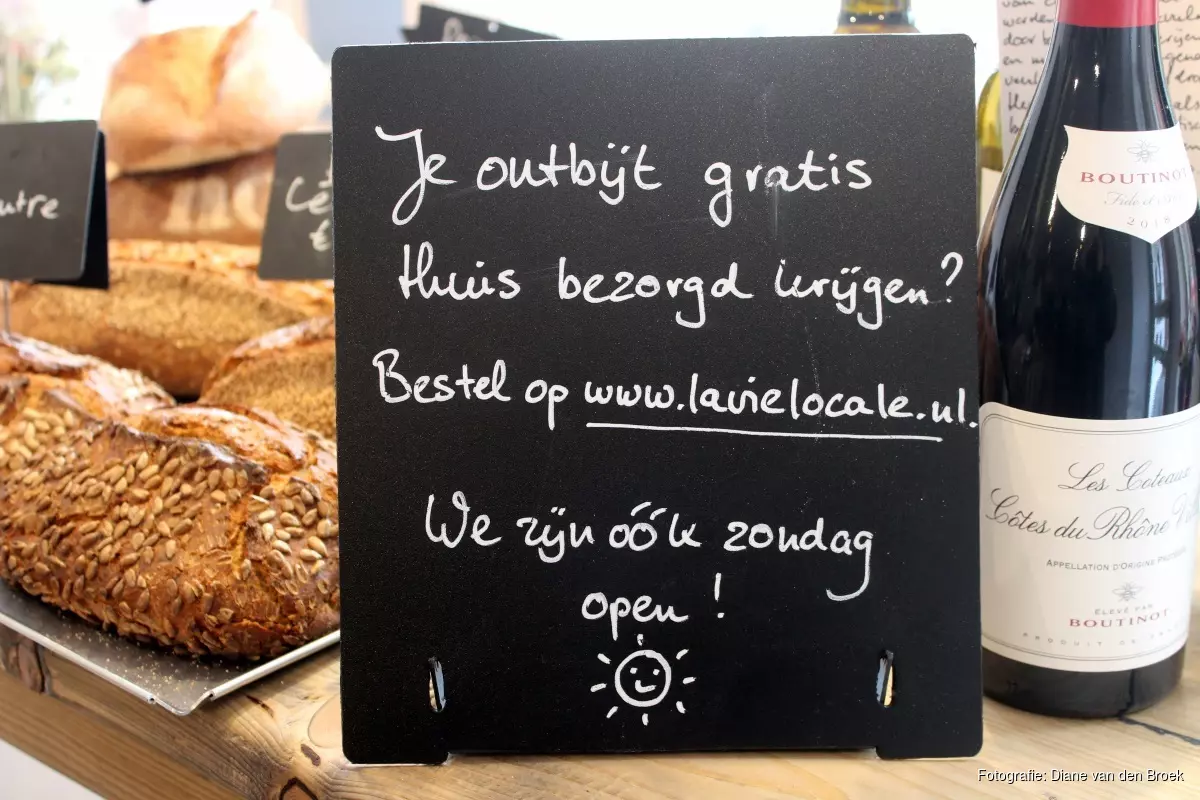 Je ontbijt gratis
thuis bezorgd krijgen?
Bestel op www.lavielocale.nl.
We zijn óók zondag
open!
BOUTINOT
2018
Les Coteaux
Côtes du Rhône
APPELLATION D'ORIGINE
ÉLEVÉ PAR
BOUTINOT
PRODUIT DE
Fotografie: Diane van den Broek